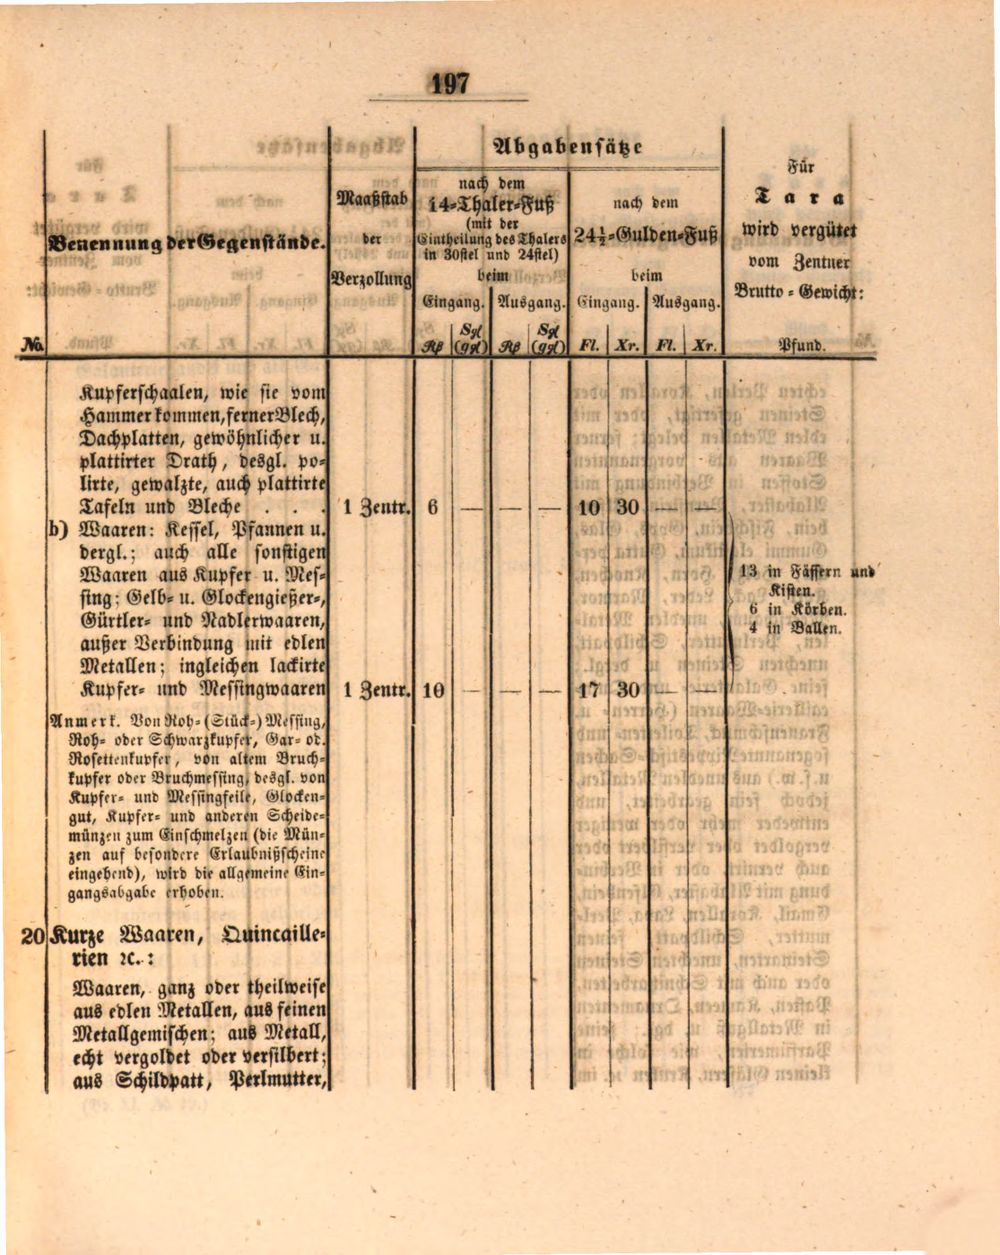 197
Abgabensätze
Benennung der Gegenstände.
Maaßstab
der
Verzollung
nach dem
14-Thaler-Fuß
(mit der
Eintheilung des Thalers
in 30stel und 24stel)
beim
Eingang. Ausgang.
nach dem
24½-Gulden-Fuß
beim
Eingang. Ausgang.
Für
Tara
wird vergütet
vom Zentner
Brutto-Gewicht:
No. Sgl Sgl
(ggl) (ggl) Fl. Xr. Fl. Xr. Pfund.
Kupferschaalen, wie sie vom
Hammer kommen, ferner Blech,
Dachplatten, gewöhnlicher u.
plattirter Drath, desgl. po-
lirte, gewalzte, auch plattirte
Tafeln und Bleche . . . 1 Zentr. 6 — — — 10 30 — —
b) Waaren: Kessel, Pfannen u.
dergl.; auch alle sonstigen
Waaren aus Kupfer u. Mes-
sing; Gelb- u. Glockengießer-,
Gürtler- und Nadlerwaaren,
außer Verbindung mit edlen
Metallen; ingleichen lackirte
Kupfer- und Messingwaaren 1 Zentr. 10 — — — 17 30 — —
13 in Fässern und
Kisten.
6 in Körben.
4 in Ballen.
Anmerk. Von Roh- (Stück-) Messing,
Roh- oder Schwarzkupfer, Gar- od.
Rosettenkupfer, von altem Bruch-
kupfer oder Bruchmessing, desgl. von
Kupfer- und Messingfeile, Glocken-
gut, Kupfer- und anderen Scheide-
münzen zum Einschmelzen (die Mün-
zen auf besondere Erlaubnißscheine
eingehend), wird die allgemeine Ein-
gangsabgabe erhoben.
20 Kurze Waaren, Quincaille-
rien ꝛc.:
Waaren, ganz oder theilweise
aus edlen Metallen, aus feinen
Metallgemischen; aus Metall,
echt vergoldet oder versilbert;
aus Schildpatt, Perlmutter,